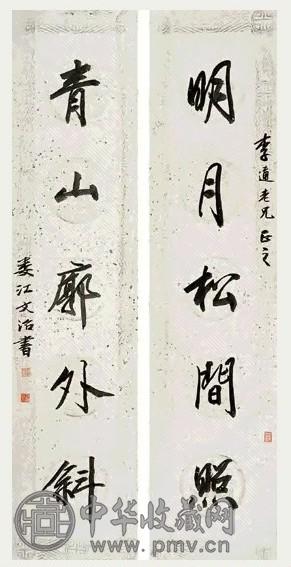 李道老兄正之
明月松間照
青山廓外斜
婁江文治書
中华收藏网
www.pmv.cn